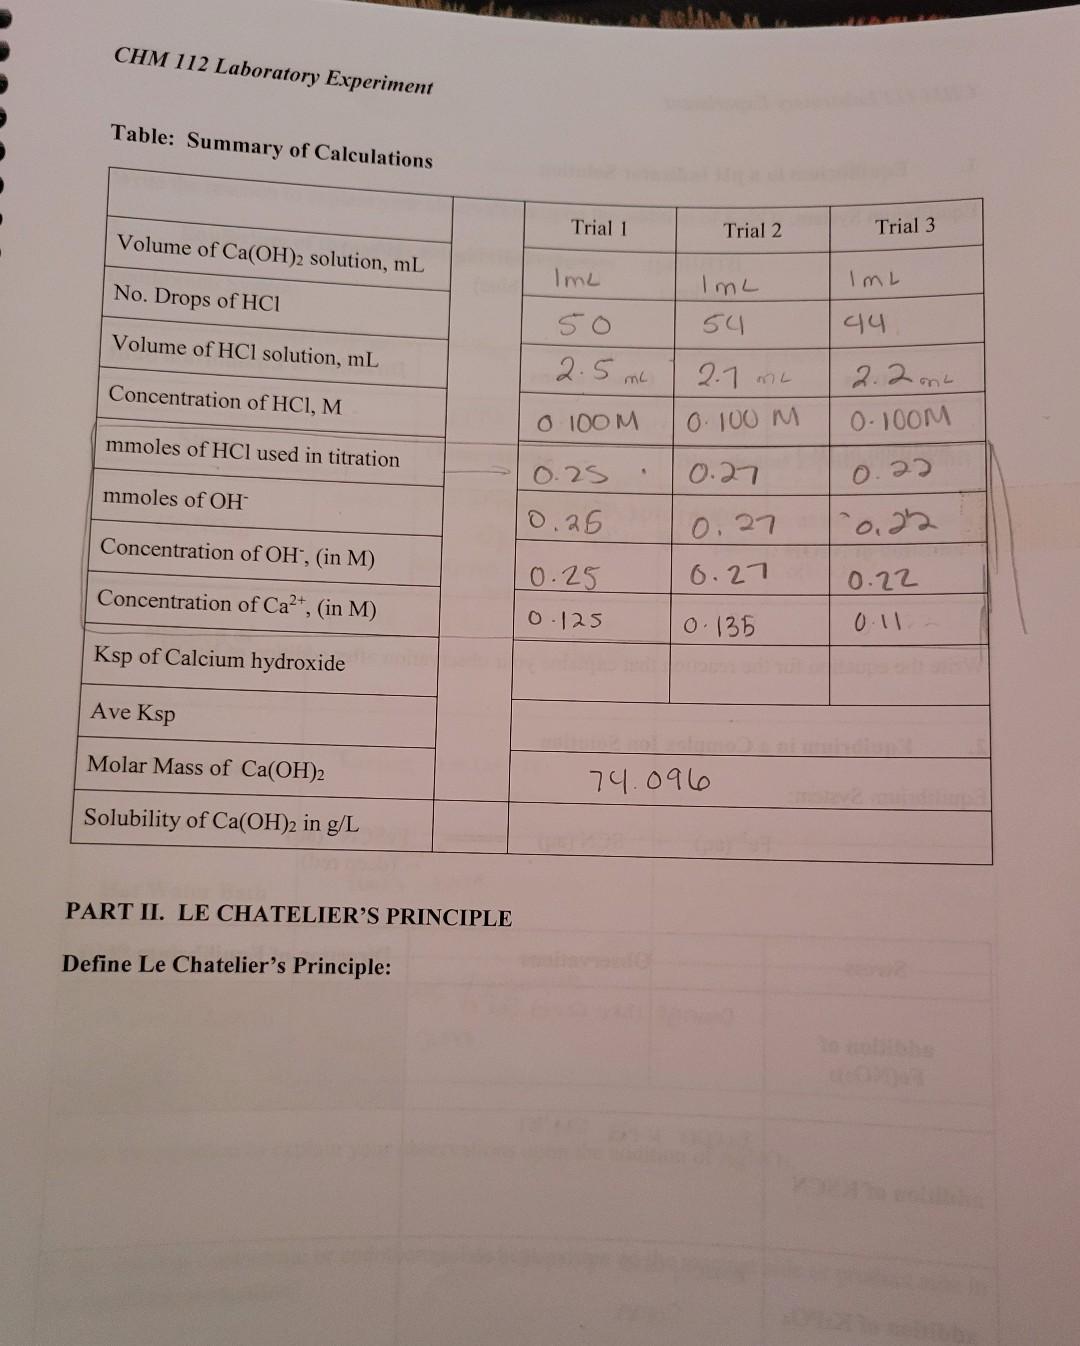 CHM 112 Laboratory Experiment
Table: Summary of Calculations
Trial 1 Trial 2 Trial 3
Volume of Ca(OH)₂ solution, mL 1mL 1mL 1mL
No. Drops of HCl 50 54 44
Volume of HCl solution, mL 2.5 mL 2.7 mL 2.2 mL
Concentration of HCl, M 0.100M 0.100 M 0.100M
mmoles of HCl used in titration 0.25 0.27 0.22
mmoles of OH⁻ 0.25 0.27 0.22
Concentration of OH⁻, (in M) 0.25 0.27 0.22
Concentration of Ca²⁺, (in M) 0.125 0.135 0.11
Ksp of Calcium hydroxide
Ave Ksp
Molar Mass of Ca(OH)₂ 74.096
Solubility of Ca(OH)₂ in g/L
PART II. LE CHATELIER'S PRINCIPLE
Define Le Chatelier's Principle: